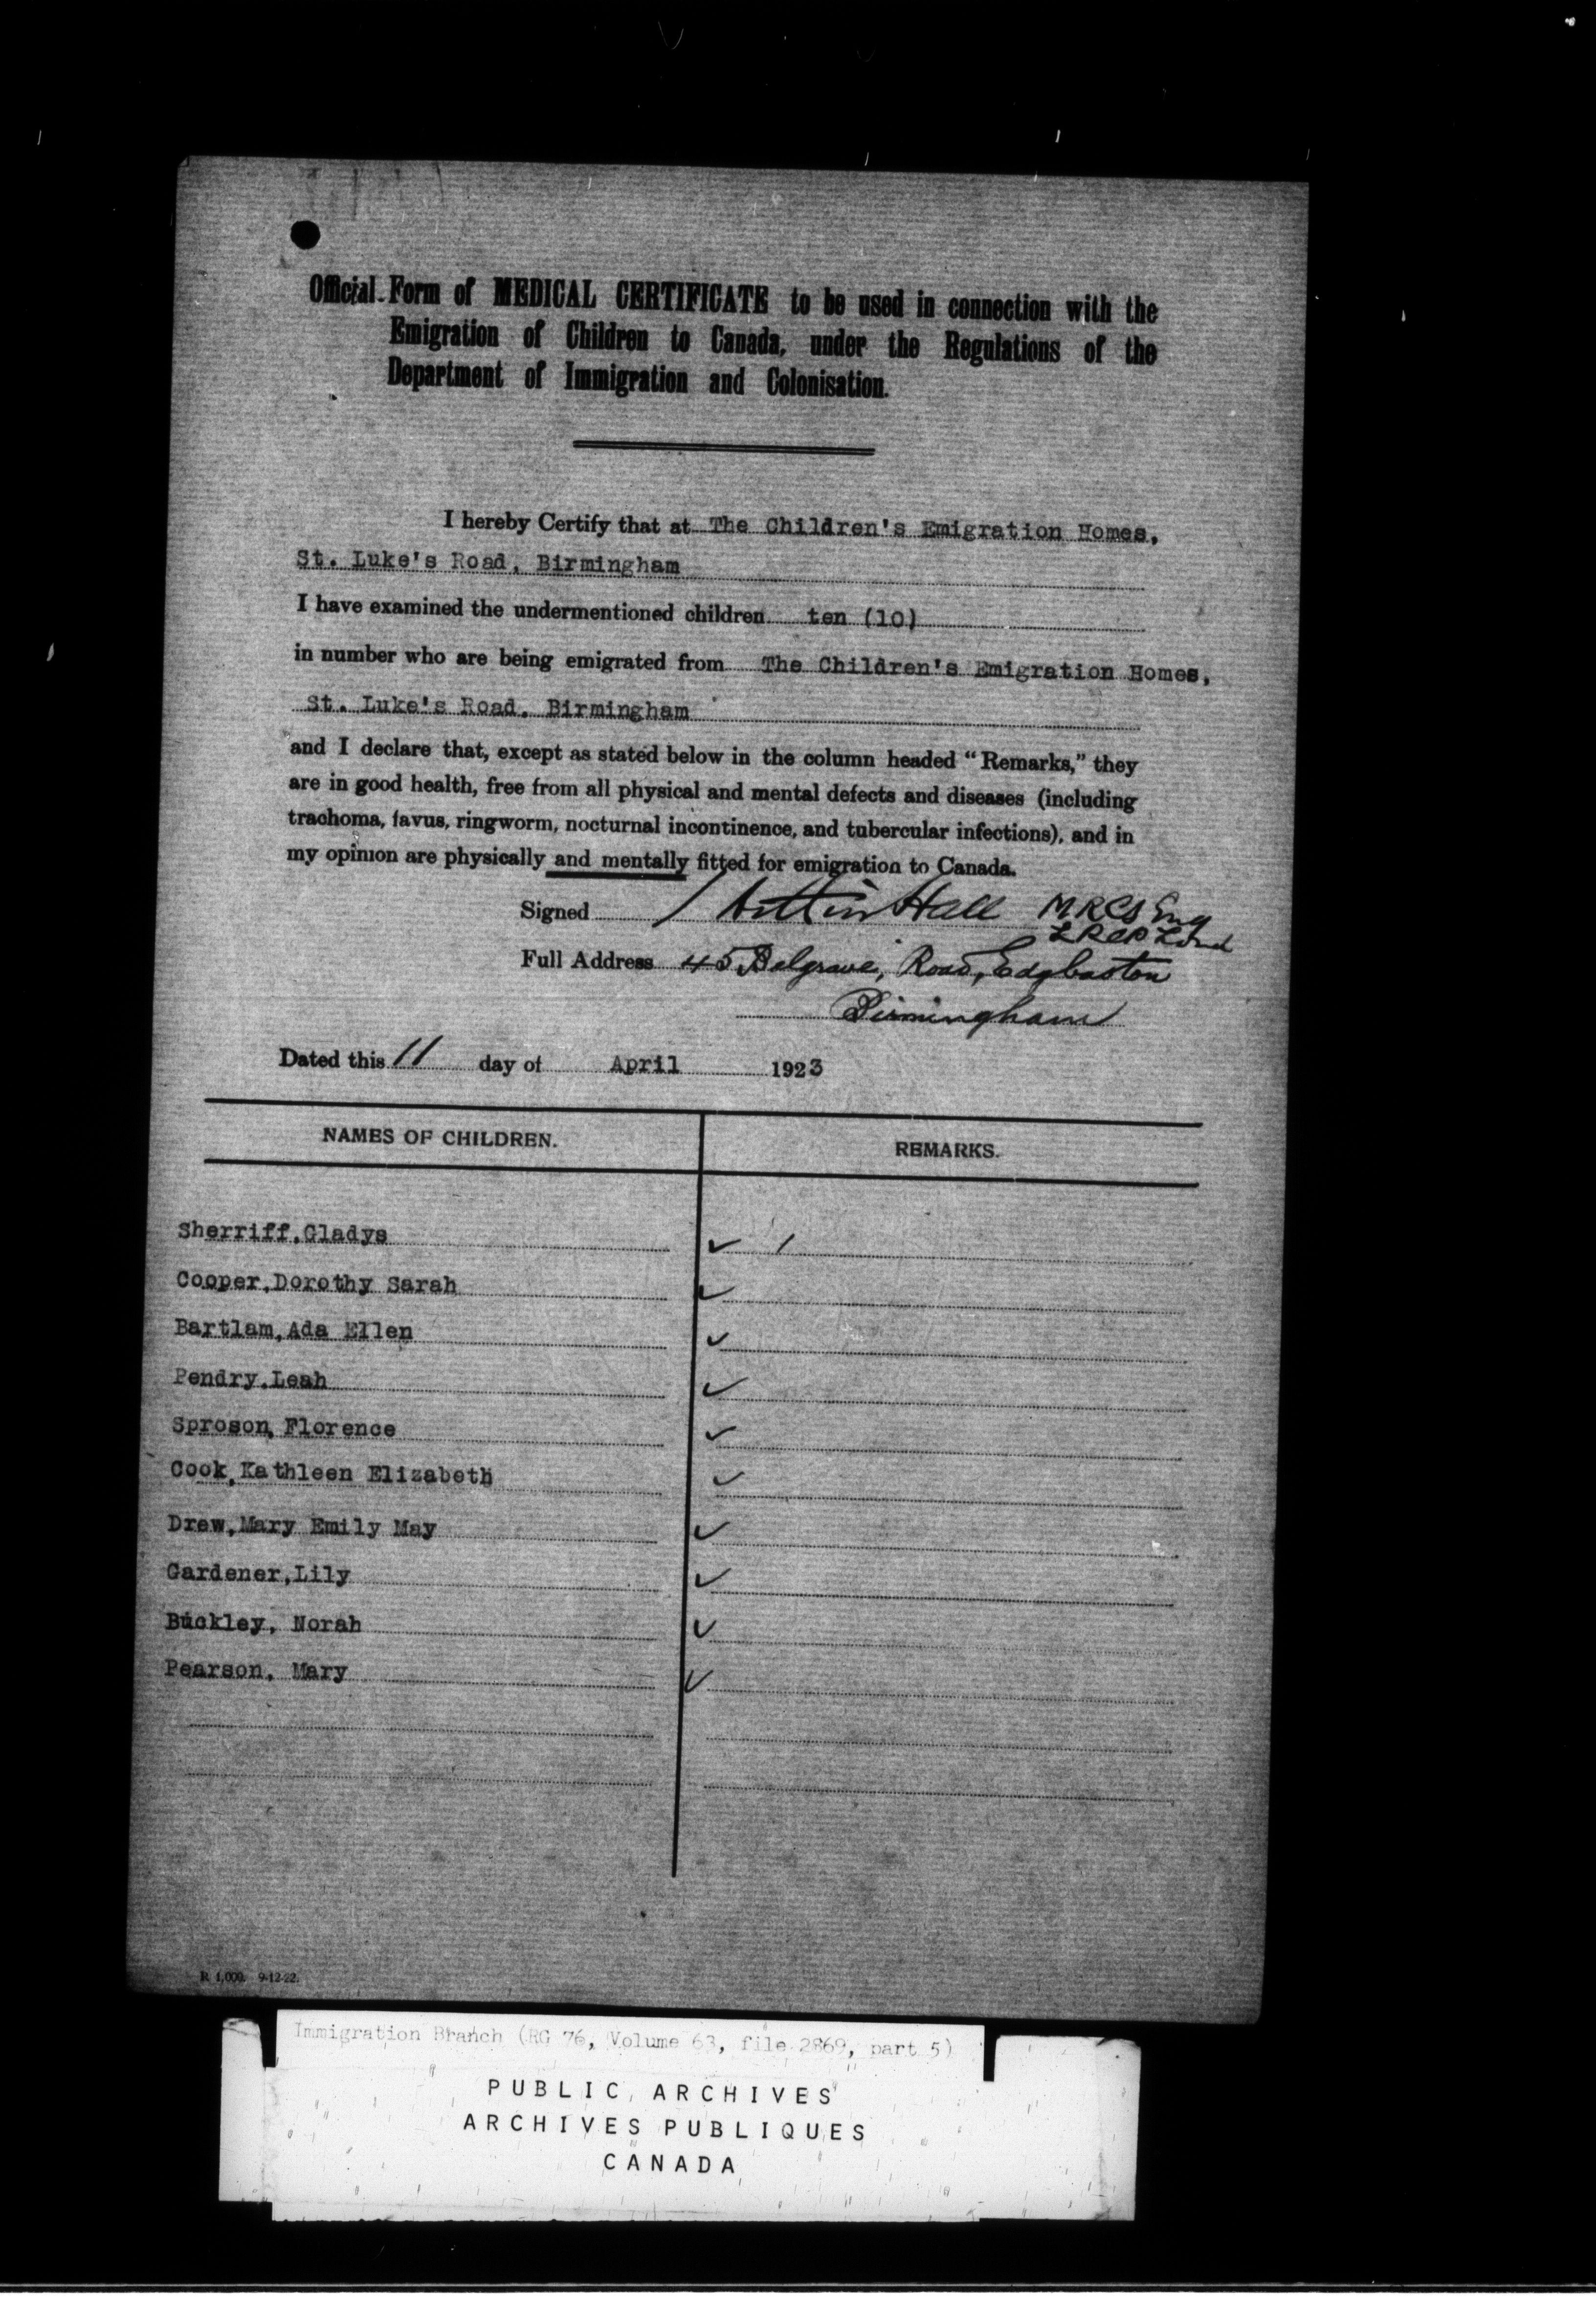 Official Form of MEDICAL CERTIFICATE to be used in connection with the
Emigration of Children to Canada, under the Regulations of the
Department of Immigration and Colonisation.
I hereby Certify that at The Children's Emigration Homes,
St. Luke's Road, Birmingham
I have examined the undermentioned children ten (10)
in number who are being emigrated from The Children's Emigration Homes,
St. Luke's Road, Birmingham
and I declare that, except as stated below in the column headed "Remarks," they
are in good health, free from all physical and mental defects and diseases (including
trachoma, favus, ringworm, nocturnal incontinence, and tubercular infections), and in
my opinion are physically and mentally fitted for emigration to Canada.
Signed Hall MRCS Eng
LRCP Lond
Full Address 45 Belgrave Road, Edgbaston
Birmingham
Dated this 11 day of April 1923
NAMES OF CHILDREN. REMARKS.
Sherriff,Gladys ✓
Cooper,Dorothy Sarah ✓
Bartlam,Ada Ellen ✓
Pendry,Leah ✓
Sproson, Florence ✓
Cook,Kathleen Elizabeth ✓
Drew,Mary Emily May ✓
Gardener,Lily ✓
Buckley, Norah ✓
Pearson, Mary ✓
R 1,000. 9-12-22.
Immigration Branch (RG 76, Volume 63, file 2869, part 5)
PUBLIC ARCHIVES
ARCHIVES PUBLIQUES
CANADA